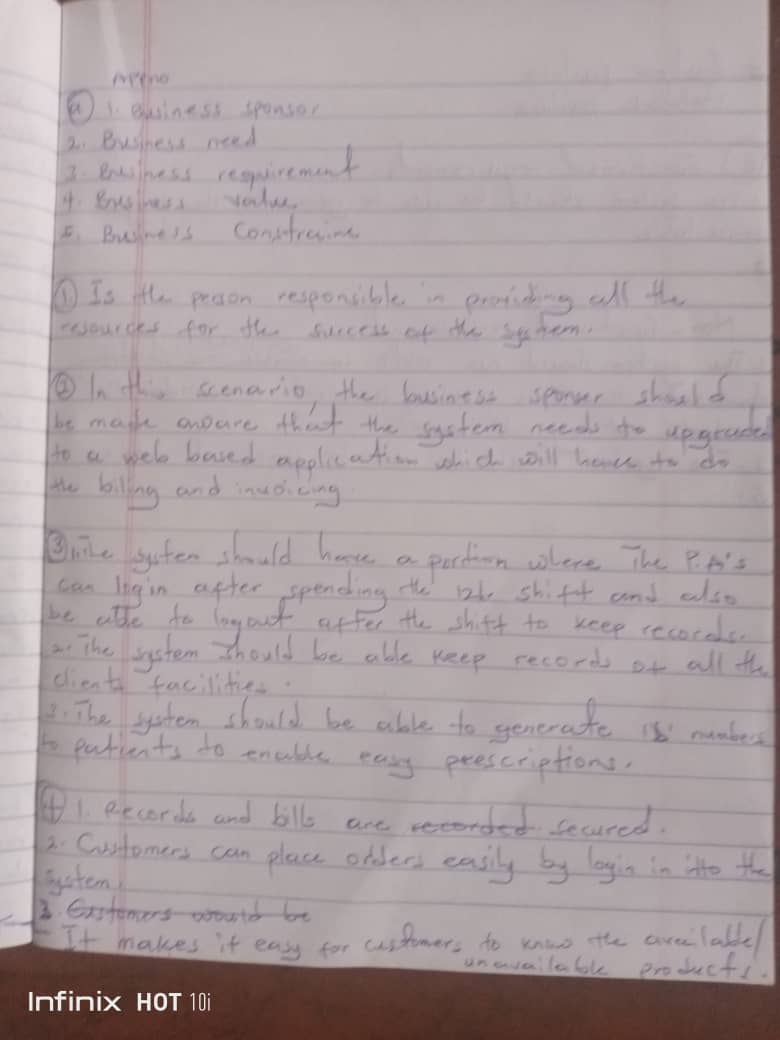 (a) 1. Business sponsor
2. Business need
3. Business requirement
4. Business value
5. Business Constraine
① Is the person responsible in providing all the
resources for the success of the system.
② In this scenario, the business sponser should
be made aware that the system needs to upgraded
to a web based application which will have to do
the biling and invoicing
③ 1. The system should have a portion where The P.A's
can login after spending the 12hr shift and also
be able to logout after the shift to keep records.
2. The system should be able keep records of all the
clients facilities.
3. The system should be able to generate numbers
to patients to enable easy prescriptions.
④ 1. Records and bills are recorded secured.
2. Customers can place orders easily by login in into the
system.
3. Customers would be
- It makes it easy for customers to know the available/
unavailable products.
Infinix HOT 10i